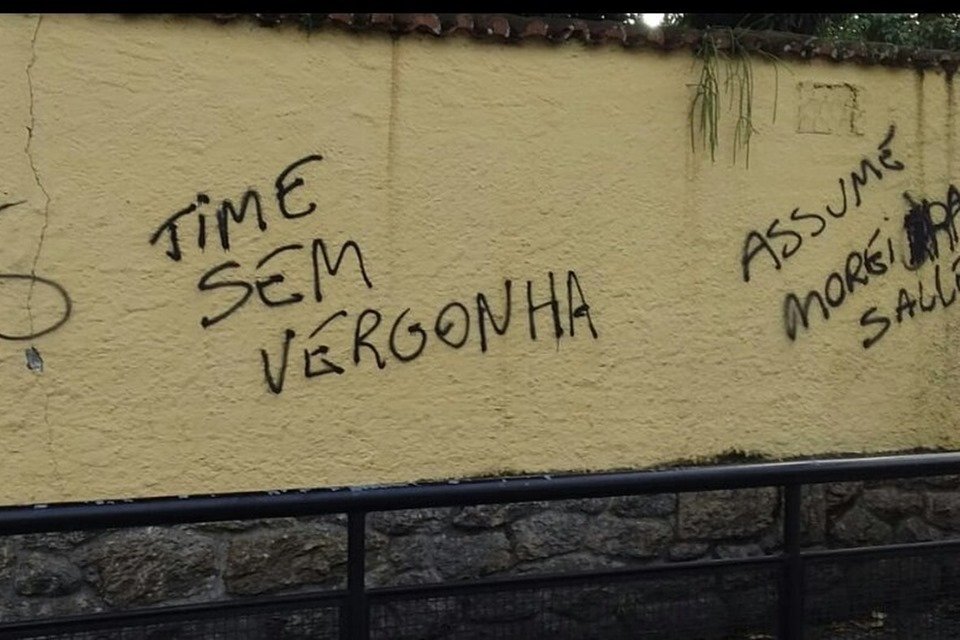 TIME
SEM
VERGONHA
ASSUME
MOREIRA
SALLE